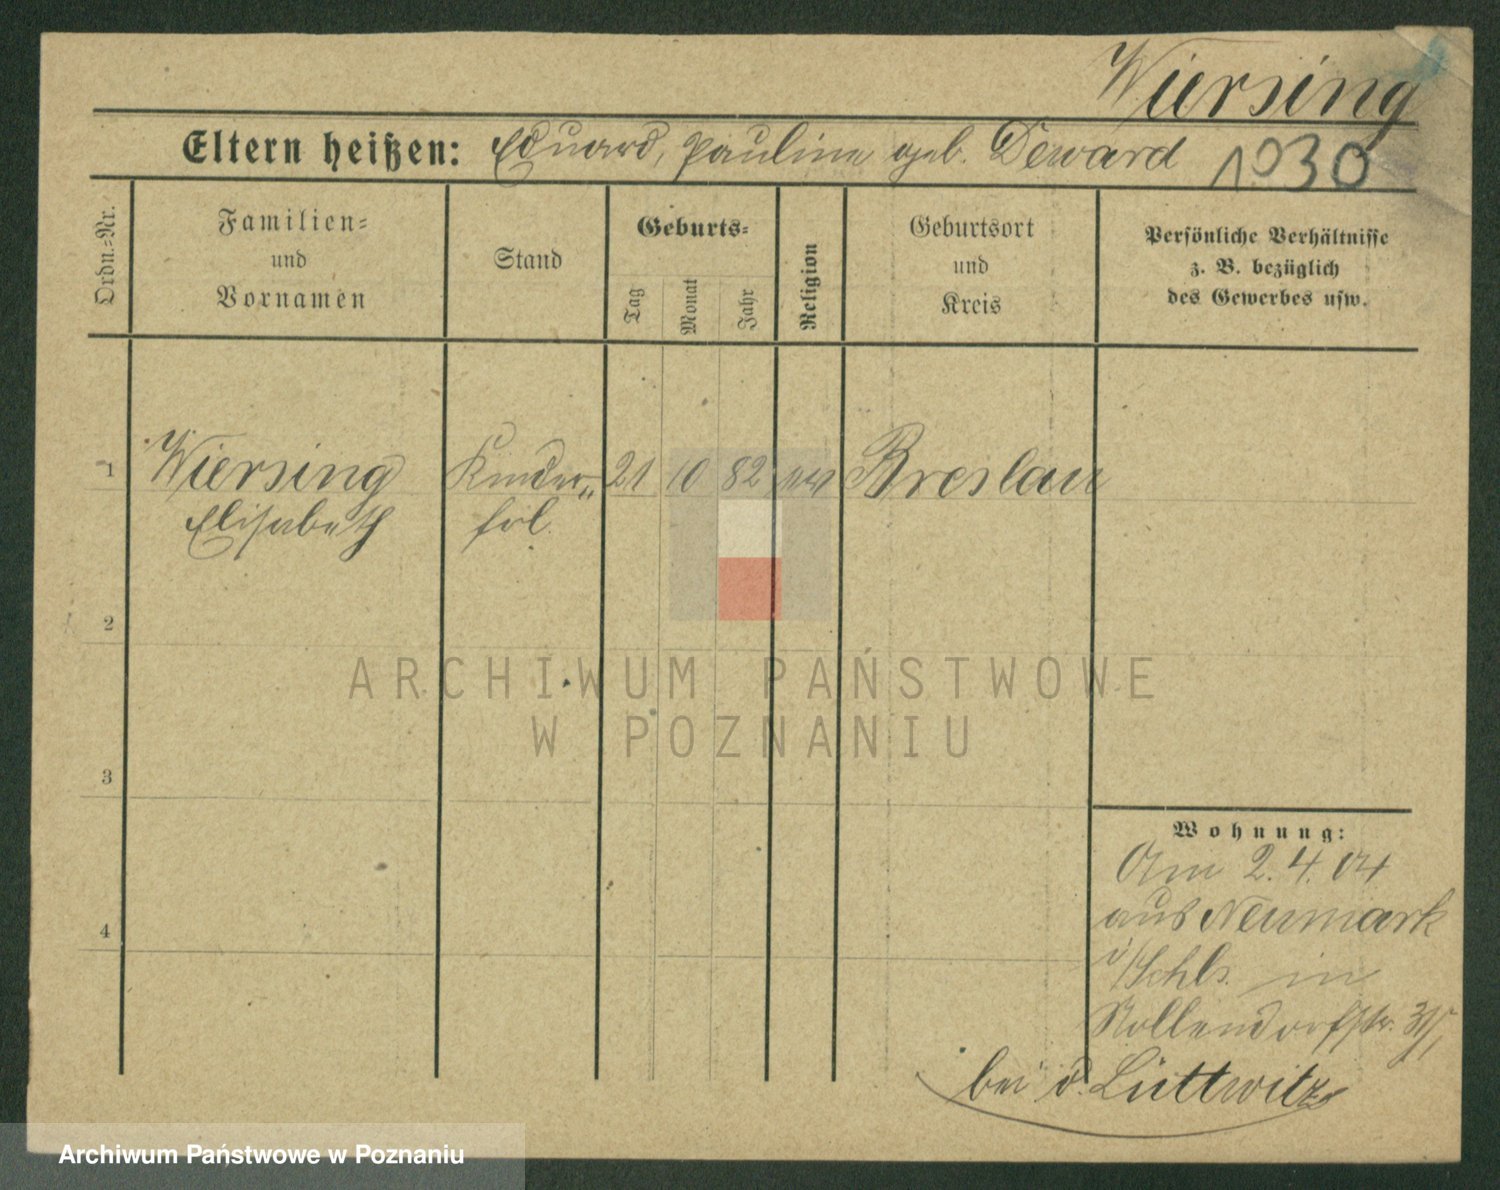 Wiersing
Eltern heißen: Eduard, Pauline geb. Deward 1030
Ordn.=Nr.
Familien=
und
Vornamen
Stand
Geburts=
Tag
Monat
Jahr
Religion
Geburtsort
und
Kreis
Persönliche Verhältnisse
z. B. bezüglich
des Gewerbes usw.
1 Wiersing Kinder= 21 10 82 ev Breslau
Elisabeth frl.
2
3
4
Wohnung:
Am 2.4.04
aus Neumark
i/Schls. in
Nollendorfstr.
bei v. Lüttwitz
ARCHIWUM PAŃSTWOWE
W POZNANIU
Archiwum Państwowe w Poznaniu